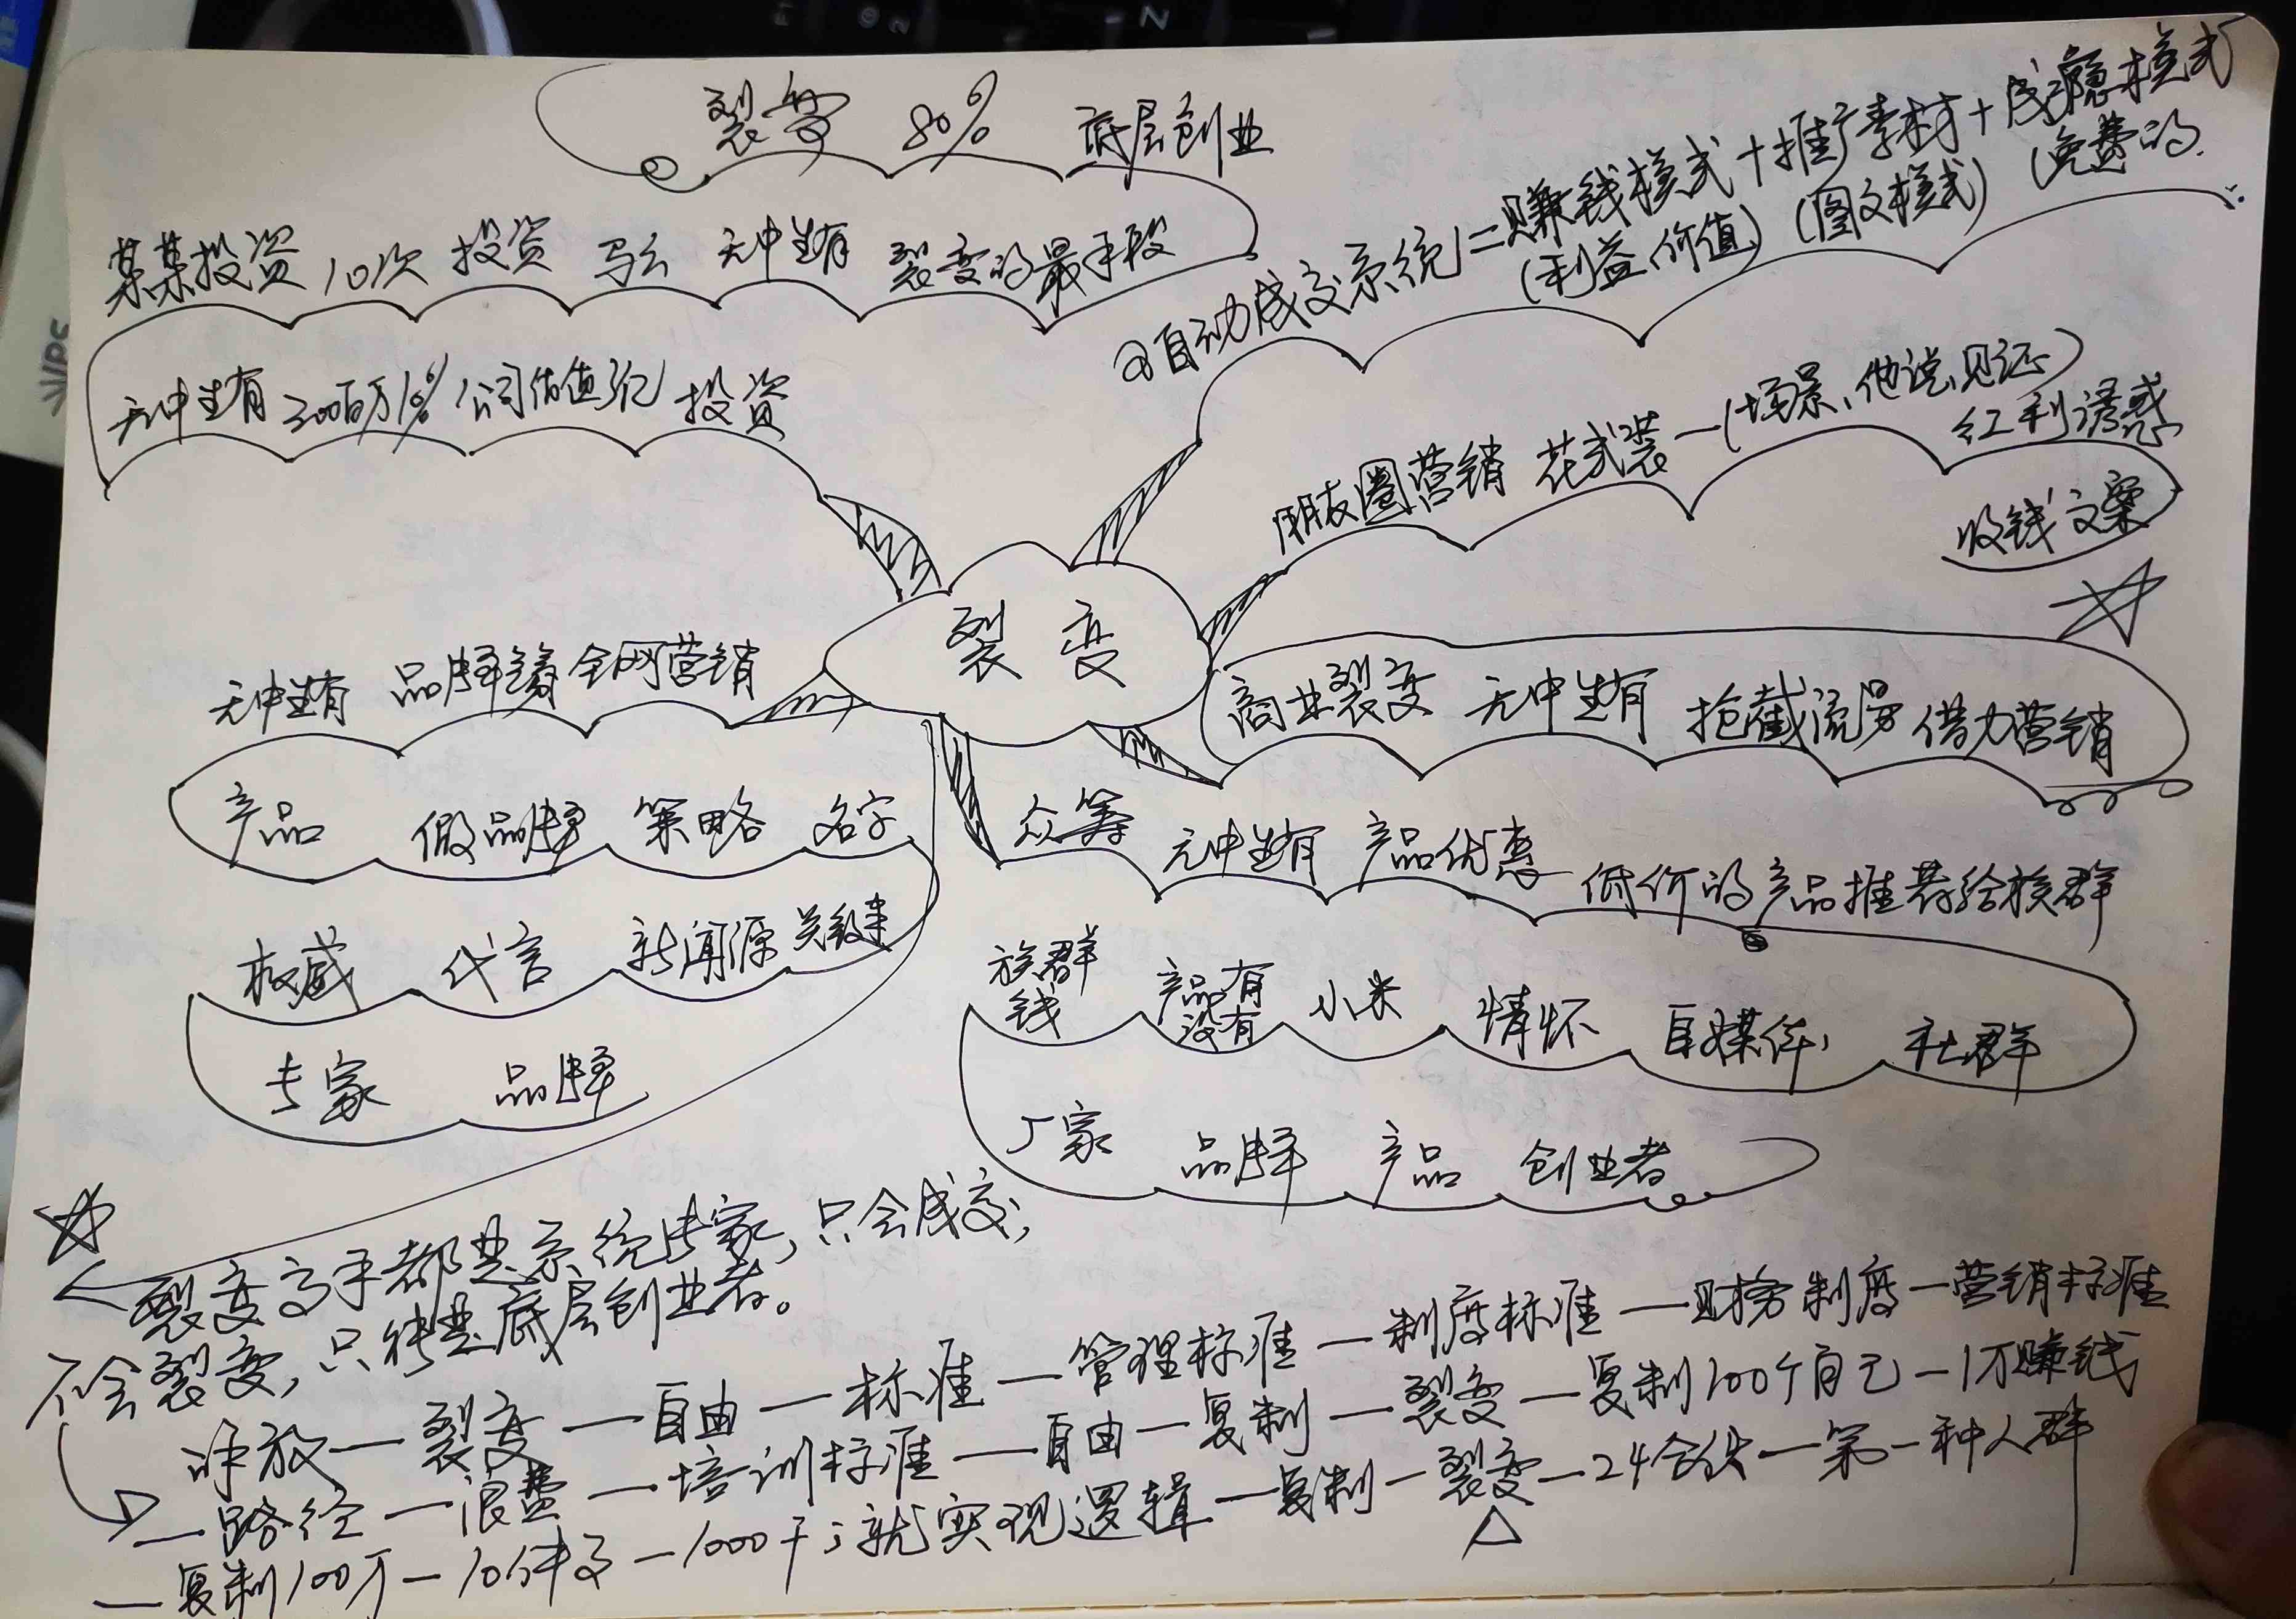 裂变 80% 底层创业
某某投资 10次 投资 马云 无中生有 裂变的最手段
无中生有 300百万10% 公司估值 投资
②自动成交系统=赚钱模式+推广素材+成瘾模式
(利益、价值) (图文模式) (免费的
朋友圈营销 花式装—(场景、他说、见证)
红利诱惑
收钱文案
裂变
商业裂变 无中生有 抢截流量 借力营销
无中生有 品牌 全网营销
产品 做品牌 策略 名字
权威 代言 新闻源 关键字
专家 品牌
众筹 无中生有 产品优惠 低价的产品推荐给族群
族群 产品有 小米 情怀 自媒体 社群
钱 没有
厂家 品牌 产品 创业者
裂变高手都是系统专家,只会成交,
不会裂变,只能是底层创业者。
裂变—自由—标准—管理标准—制度标准—财务制度—营销标准
—路径—浪费—培训标准—自由—复制—裂变—复制100个自己—1万赚钱
—复制100万—10个—1000千;就实现逻辑—复制—裂变—24合伙—第一种人群